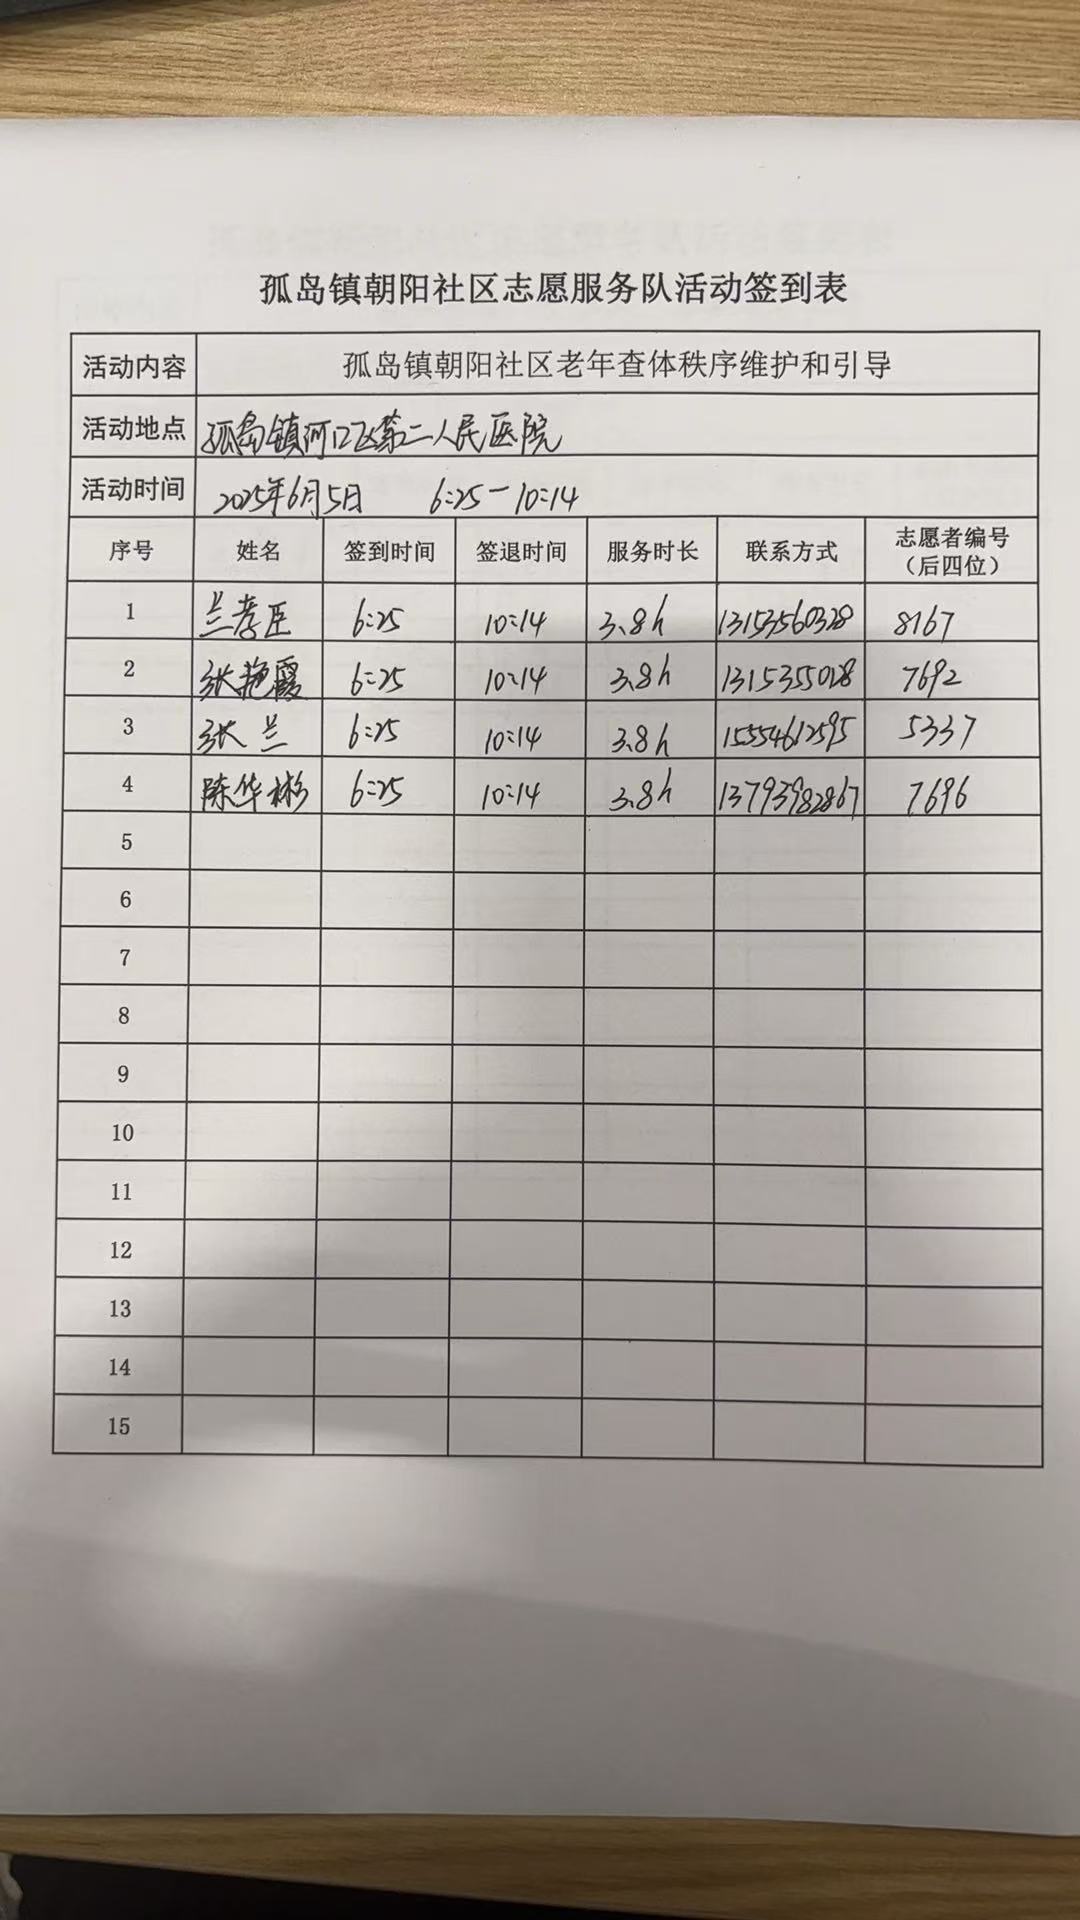 孤岛镇朝阳社区志愿服务队活动签到表
活动内容 孤岛镇朝阳社区老年查体秩序维护和引导
活动地点 孤岛镇河口区第二人民医院
活动时间 2025年6月5日 6:25-10:14
序号 姓名 签到时间 签退时间 服务时长 联系方式 志愿者编号（后四位）
1 兰孝臣 6:25 10:14 3.8h 13153560328 8167
2 张艳霞 6:25 10:14 3.8h 1315355028 7692
3 张兰 6:25 10:14 3.8h 15554612595 5337
4 陈华彬 6:25 10:14 3.8h 13793982867 7696
5
6
7
8
9
10
11
12
13
14
15